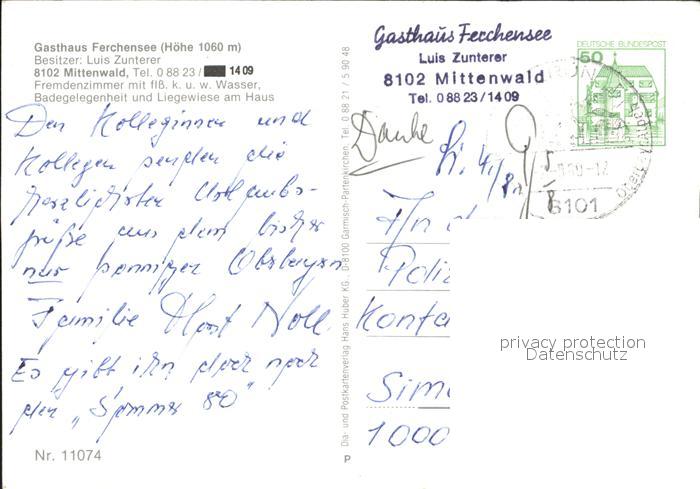 Gasthaus Ferchensee (Höhe 1060 m)
Besitzer: Luis Zunterer
8102 Mittenwald, Tel. 0 88 23 / 14 09
Fremdenzimmer mit flß. k. u. w. Wasser,
Badegelegenheit und Liegewiese am Haus
Den Kolleginnen und
Kollegen senden die
herzlichsten Urlaubs-
grüße aus dem bisher
nur sonnigen Oberbayern
Familie Horst Noll.
Es gibt ihn doch noch
den „Sommer 80"
Nr. 11074
Dia- und Postkartenverlag Hans Huber KG., D-8100 Garmisch-Partenkirchen, Tel. 0 88 21 / 5 90 48
P
Gasthaus Ferchensee
Luis Zunterer
8102 Mittenwald
Tel. 0 88 23 / 14 09
DEUTSCHE BUNDESPOST
50
8101
Danke
An d
Poliz
Konta
Sime
1000
privacy protection
Datenschutz